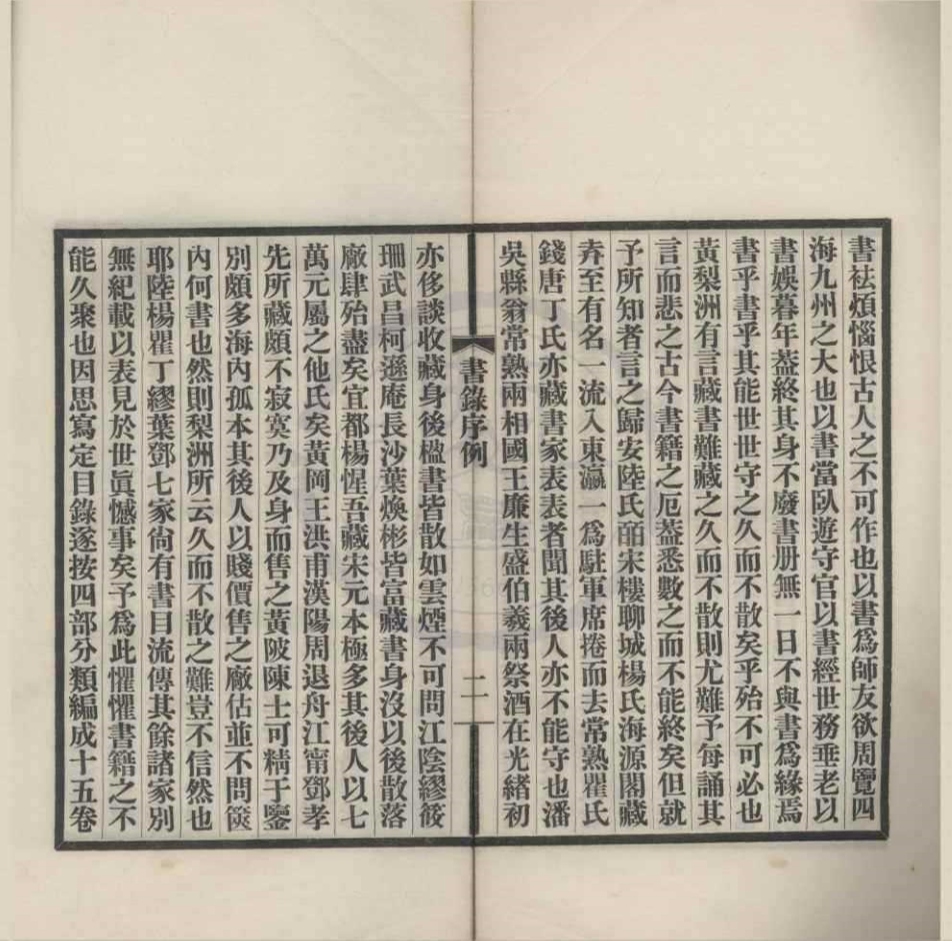 書祛煩惱恨古人之不可作也以書爲師友欲周覽四
海九州之大也以書當臥遊守官以書經世務垂老以
書娛暮年葢終其身不廢書册無一日不與書爲緣焉
書乎書乎其能世世守之久而不散矣乎殆不可必也
黃梨洲有言藏書難藏之久而不散則尤難予每誦其
言而悲之古今書籍之厄葢悉數之而不能終矣但就
予所知者言之歸安陸氏皕宋樓聊城楊氏海源閣藏
弆至有名一流入東瀛一爲駐軍席捲而去常熟瞿氏
錢唐丁氏亦藏書家表表者聞其後人亦不能守也潘
吳縣翁常熟兩相國王廉生盛伯羲兩祭酒在光緒初
書錄序例
二
亦侈談收藏身後楹書皆散如雲煙不可問江陰繆筱
珊武昌柯遜庵長沙葉煥彬皆富藏書身沒以後散落
廠肆殆盡矣宜都楊惺吾藏宋元本極多其後人以七
萬元屬之他氏矣黃岡王洪甫漢陽周退舟江甯鄧孝
先所藏頗不寂寞乃及身而售之黃陂陳士可精于鑒
別頗多海內孤本其後人以賤價售之廠估並不問篋
內何書也然則梨洲所云久而不散之難豈不信然也
耶陸楊瞿丁繆葉鄧七家尙有書目流傳其餘諸家別
無紀載以表見於世眞憾事矣予爲此懼懼書籍之不
能久聚也因思寫定目錄遂按四部分類編成十五卷